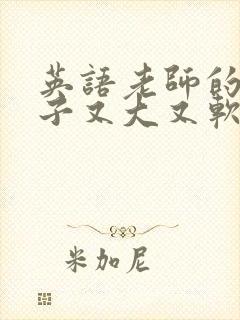 英語老師的
子又大又軟
米加尼